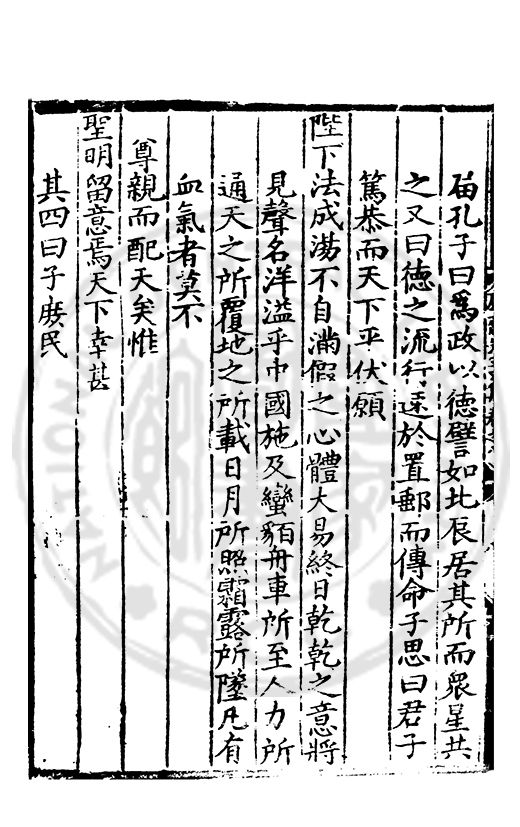 庙孔子曰爲政以德譬如北辰居其所而眾星共
之又曰德之流行速於置郵而傳命子思曰君子
篤恭而天下平伏願
陛下法成湯不自滿假之心體大易終日乾乾之意將
見聲名洋溢乎中國施及蠻貊舟車所至人力所
通天之所覆地之所載日月所照霜露所墜凡有
血氣者莫不
尊親而配天矣惟
聖明留意焉天下幸甚
其四曰子庶民